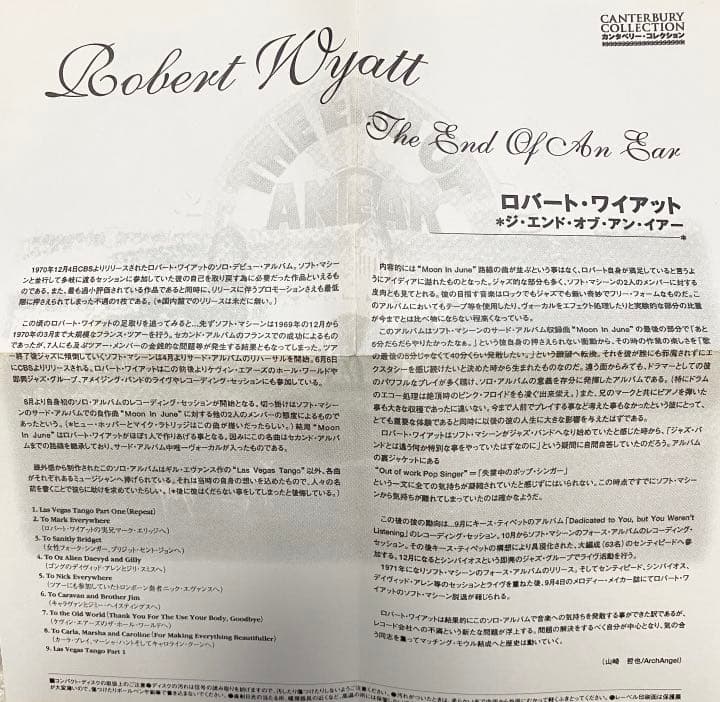 CANTERBURY
COLLECTION
カンタベリー・コレクション
Robert Wyatt
The End Of An Ear
THE END OF
AN EAR
ロバート・ワイアット
*ジ・エンド・オブ・アン・イアー
*
1970年12月4日CBSよりリリースされたロバート・ワイアットのソロ・デビュー・アルバム。ソフト・マシー
ンと並行して多岐に渡るセッションに参加していた彼の自己を取り戻す為に必要だった作品といえるも
のである。また、最も過小評価されている作品であると同時に、リリースに伴うプロモーションさえも最低
限に押さえられてしまった不遇の1枚である。(*国内盤でのリリースは未だに無い。)
この頃のロバート・ワイアットの足取りを追ってみると…先ずソフト・マシーンは1969年の12月から
1970年の3月まで大規模なフランス・ツアーを行う。セカンド・アルバムのフランスでの成功によるもの
であったが、7人にも及ぶツアー・メンバーの金銭的な問題等が発生する結果ともなってしまった。ツア
ー終了後ジャズに傾倒していくソフト・マシーンは4月よりサード・アルバムのリハーサルを開始。6月6日
にCBSよりリリースされる。ロバート・ワイアットはこの前後よりケヴィン・エアーズのホール・ワールドや
即興ジャズ・グループ、アメイジング・バンドのライヴやレコーディング・セッションにも参加している。
8月より自身初のソロ・アルバムのレコーディング・セッションが開始となる。切っ掛けはソフト・マシー
ンのサード・アルバムでの自作曲“Moon In June”に対する他の2人のメンバーの態度によるもので
あったという。(*ヒュー・ホッパーとマイク・ラトリッジはこの曲が嫌いだったらしい。)結局“Moon
In June”はロバート・ワイアットがほぼ1人で作りあげる事となる。因みにこの名曲はセカンド・アルバ
ムまでの路線を継承しており、サード・アルバム中唯一ヴォーカルが入ったものである。
疎外感から制作されたこのソロ・アルバムはギル・エヴァンス作の“Las Vegas Tango”以外、各曲
がそれぞれあるミュージシャンへ捧げられている。それは当時の自身の想いを込めたもので、人々の名
前を書くことで彼らに助けを求めていたらしい。(*後に彼はくだらない事をしてしまったと後悔している。)
1. Las Vegas Tango Part One (Repeat)
2. To Mark Everywhere
(ロバート・ワイアットの実兄マーク・エリッジへ)
3. To Saintly Bridget
(女性フォーク・シンガー、ブリジット・セントジョンへ)
4. To Oz Alien Daevyd and Gilly
(ゴングのデイヴィッド・アレンとジリ・スミスへ)
5. To Nick Everywhere
(ツアーにも参加していたトロンボーン奏者ニック・エヴァンスへ)
6. To Caravan and Brother Jim
(キャラヴァンとジミー・ヘイスティングスへ)
7. To the Old World (Thank You For The Use Your Body, Goodbye)
(ケヴィン・エアーズのザ・ホール・ワールドへ)
8. To Carla, Marsha and Caroline (For Making Everything Beautifuller)
(カーラ・ブレイ、マーシャ・ハントそしてキャロライン・クーンへ)
9. Las Vegas Tango Part 1
内容的には“Moon In June”路線の曲が並ぶという事はなく、ロバート自身が満足していると言うよ
うにアイディアに溢れたものとなった。ジャズ的な部分も多く、ソフト・マシーンの2人のメンバーに対する
皮肉とも見てとれる。彼の目指す音楽はロックでもジャズでも無い奇妙でフリー・フォームなものだ。こ
のアルバムにおいてもテープ等を使用したり、ヴォーカルをエフェクト処理したりと実験的な部分の比重
が今までとは比べ物にならない程高くなっている。
このアルバムはソフト・マシーンのサード・アルバム収録曲“Moon In June”の最後の部分で「あと
5分だらだらやりたかったなぁ。」という彼自身の押さえられない衝動から、その時の作業の楽しさを「歌
の最後の5分じゃなくて40分くらい発散したい。」という願望へ転換。それを彼が誰にも邪魔されずにエ
クスタシーを感じ続けたいと決めた時から生まれたものなのだ。違う面からみても、ドラマーとしての彼
のパワフルなプレイが多く聴け、ソロ・アルバムの意義を存分に発揮したアルバムである。(特にドラム
のエコー処理は絶頂時のピンク・フロイドをも凌ぐ出来栄え。)また、兄のマークと共にピアノを弾いた
事も大きな収穫であったに違いない。今まで人前でプレイする事など考えた事もなかったという彼にとって、
とても重要な体験であると同時に以後の彼の人生に大きな影響を与えたはずである。
ロバート・ワイアットはソフト・マシーンがジャズ・バンドへなり始めていたと感じた時から、「ジャズ・バ
ンドとは違う何か特別な事をやっていたはずなのに」という疑問に自問自答していたのだろう。アルバム
の裏ジャケットにある
“Out of work Pop Singer”＝「失業中のポップ・シンガー」
という一文に全ての気持ちが凝縮されていたと感じずにはいられない。この時点ですでにソフト・マシー
ンから気持ちが離れてしまっていたのは確かなようだ。
この後の彼の動向は…9月にキース・ティペットのアルバム「Dedicated to You, but You Weren't
Listening」のレコーディング・セッション。10月からソフト・マシーンのフォース・アルバムのレコーディング・
セッション。その後キース・ティペットの構想により具現化された、大編成(53名)のセンティピードへ参
加する。12月になるとシンバイオシスという即興のジャズ・グループでライヴ活動を行う。
1971年になりソフト・マシーンのフォース・アルバムのリリース。そしてセンティピード、シンバイオシス、
デイヴィッド・アレン等のセッションとライヴを重ねた後、9月4日のメロディー・メイカー誌にてロバート・ワ
イアットのソフト・マシーン脱退が報じられる。
ロバート・ワイアットは結果的にこのソロ・アルバムで音楽への気持ちを発散する事ができた訳であるが、
レコード会社への不満という新たな問題が浮上する。問題の解決をするべく自分が中心となり、気の合
う同志を募ってマッチング・モウル結成へと歴史は動いていく。
(山崎 哲也/ArchAngel)
■コンパクト・ディスクの取扱上のご注意●ディスクの汚れは信号の読み取りを妨げますので、汚したり傷つけたりしないようご注意ください。
●レーベル印刷面は保護層